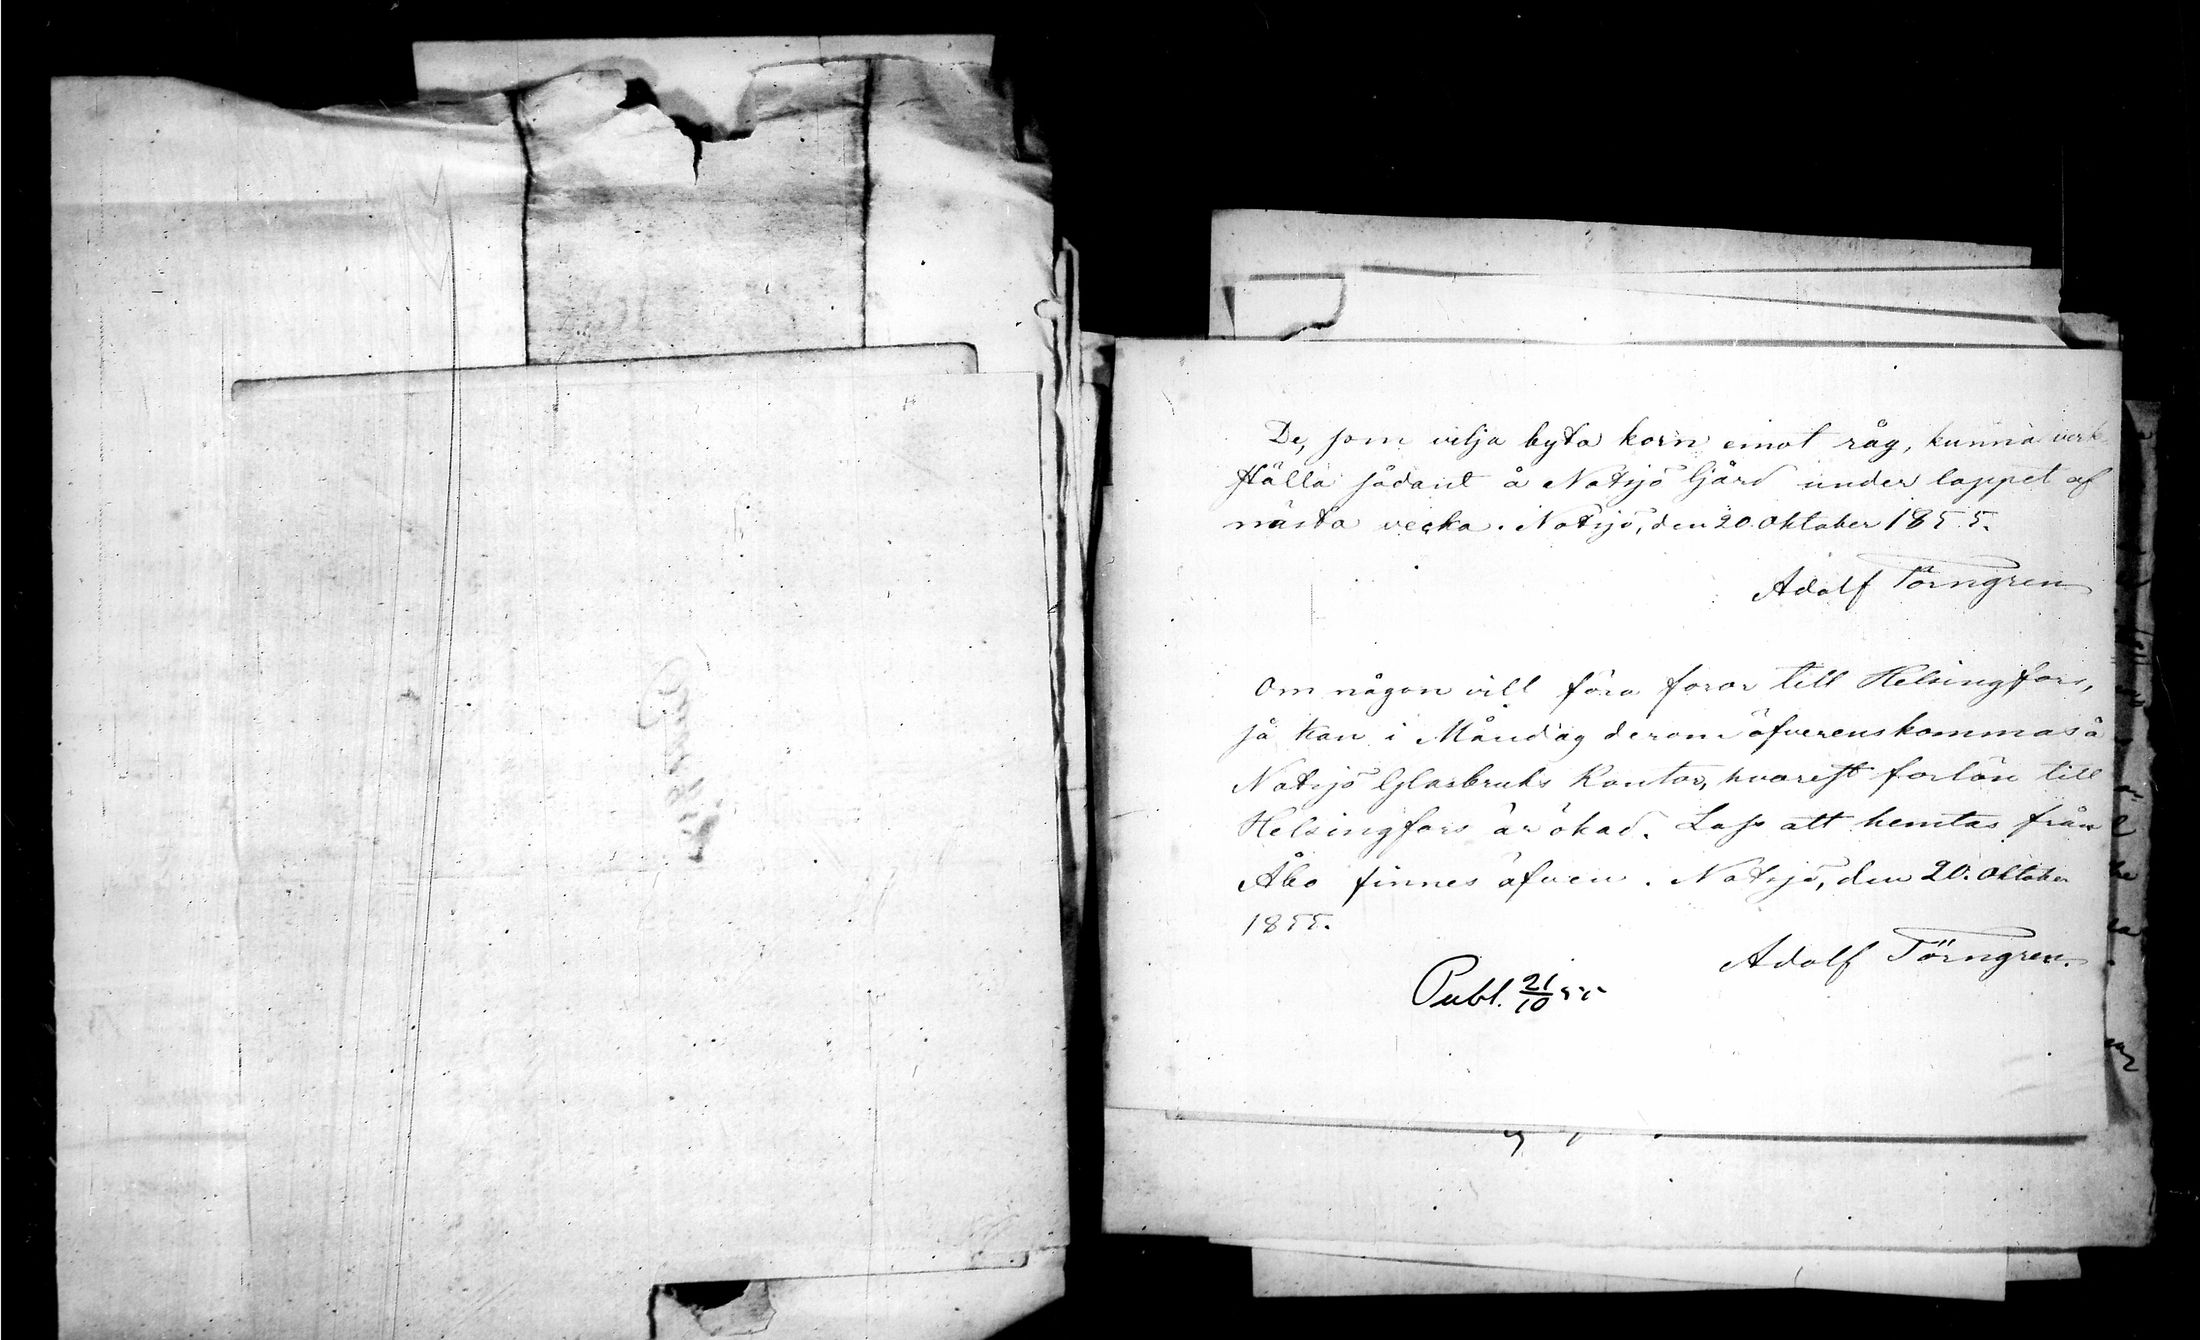 De, som vilja byta korn emot råg, kunna verk-
ställa sådant å Notsjö Gård under loppet af
nästa vecka. Notsjö, den 20. Oktober 1855.
Adolf Törngren
Om någon vill föra foror till Helsingfors,
så kan i Måndag derom öfverenskommas å
Notsjö Glasbruks Kontor, hvarest forlön till
Helsingfors är ökad. Lass att hemtas från
Åbo finnes äfven. Notsjö, den 20. Oktober
1855.
Adolf Törngren.
Publ. 21/10 55